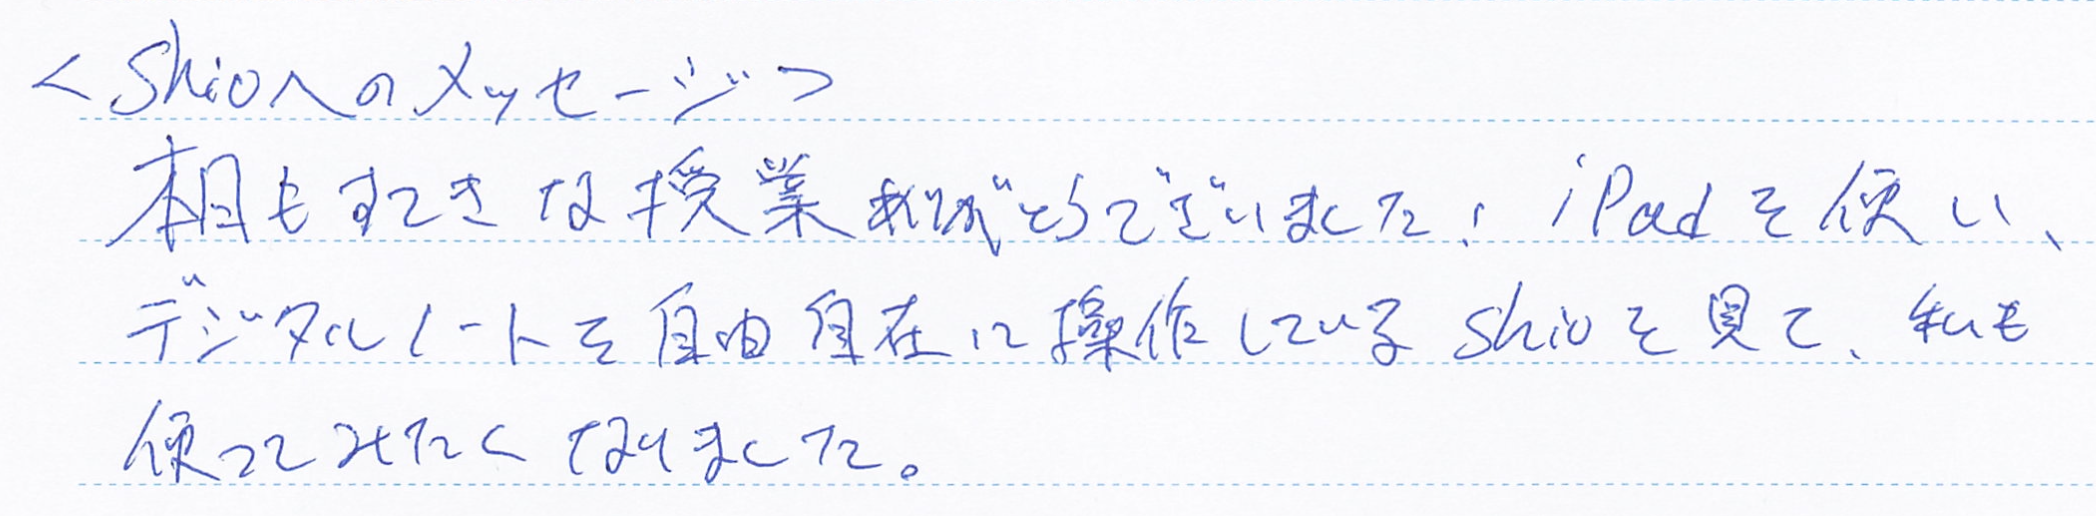 <Shioへのメッセージ>
本日もすてきな授業ありがとうございました! iPadを使い、
デジタルノートを自由自在に操作しているShioを見て、私も
使ってみたくなりました。